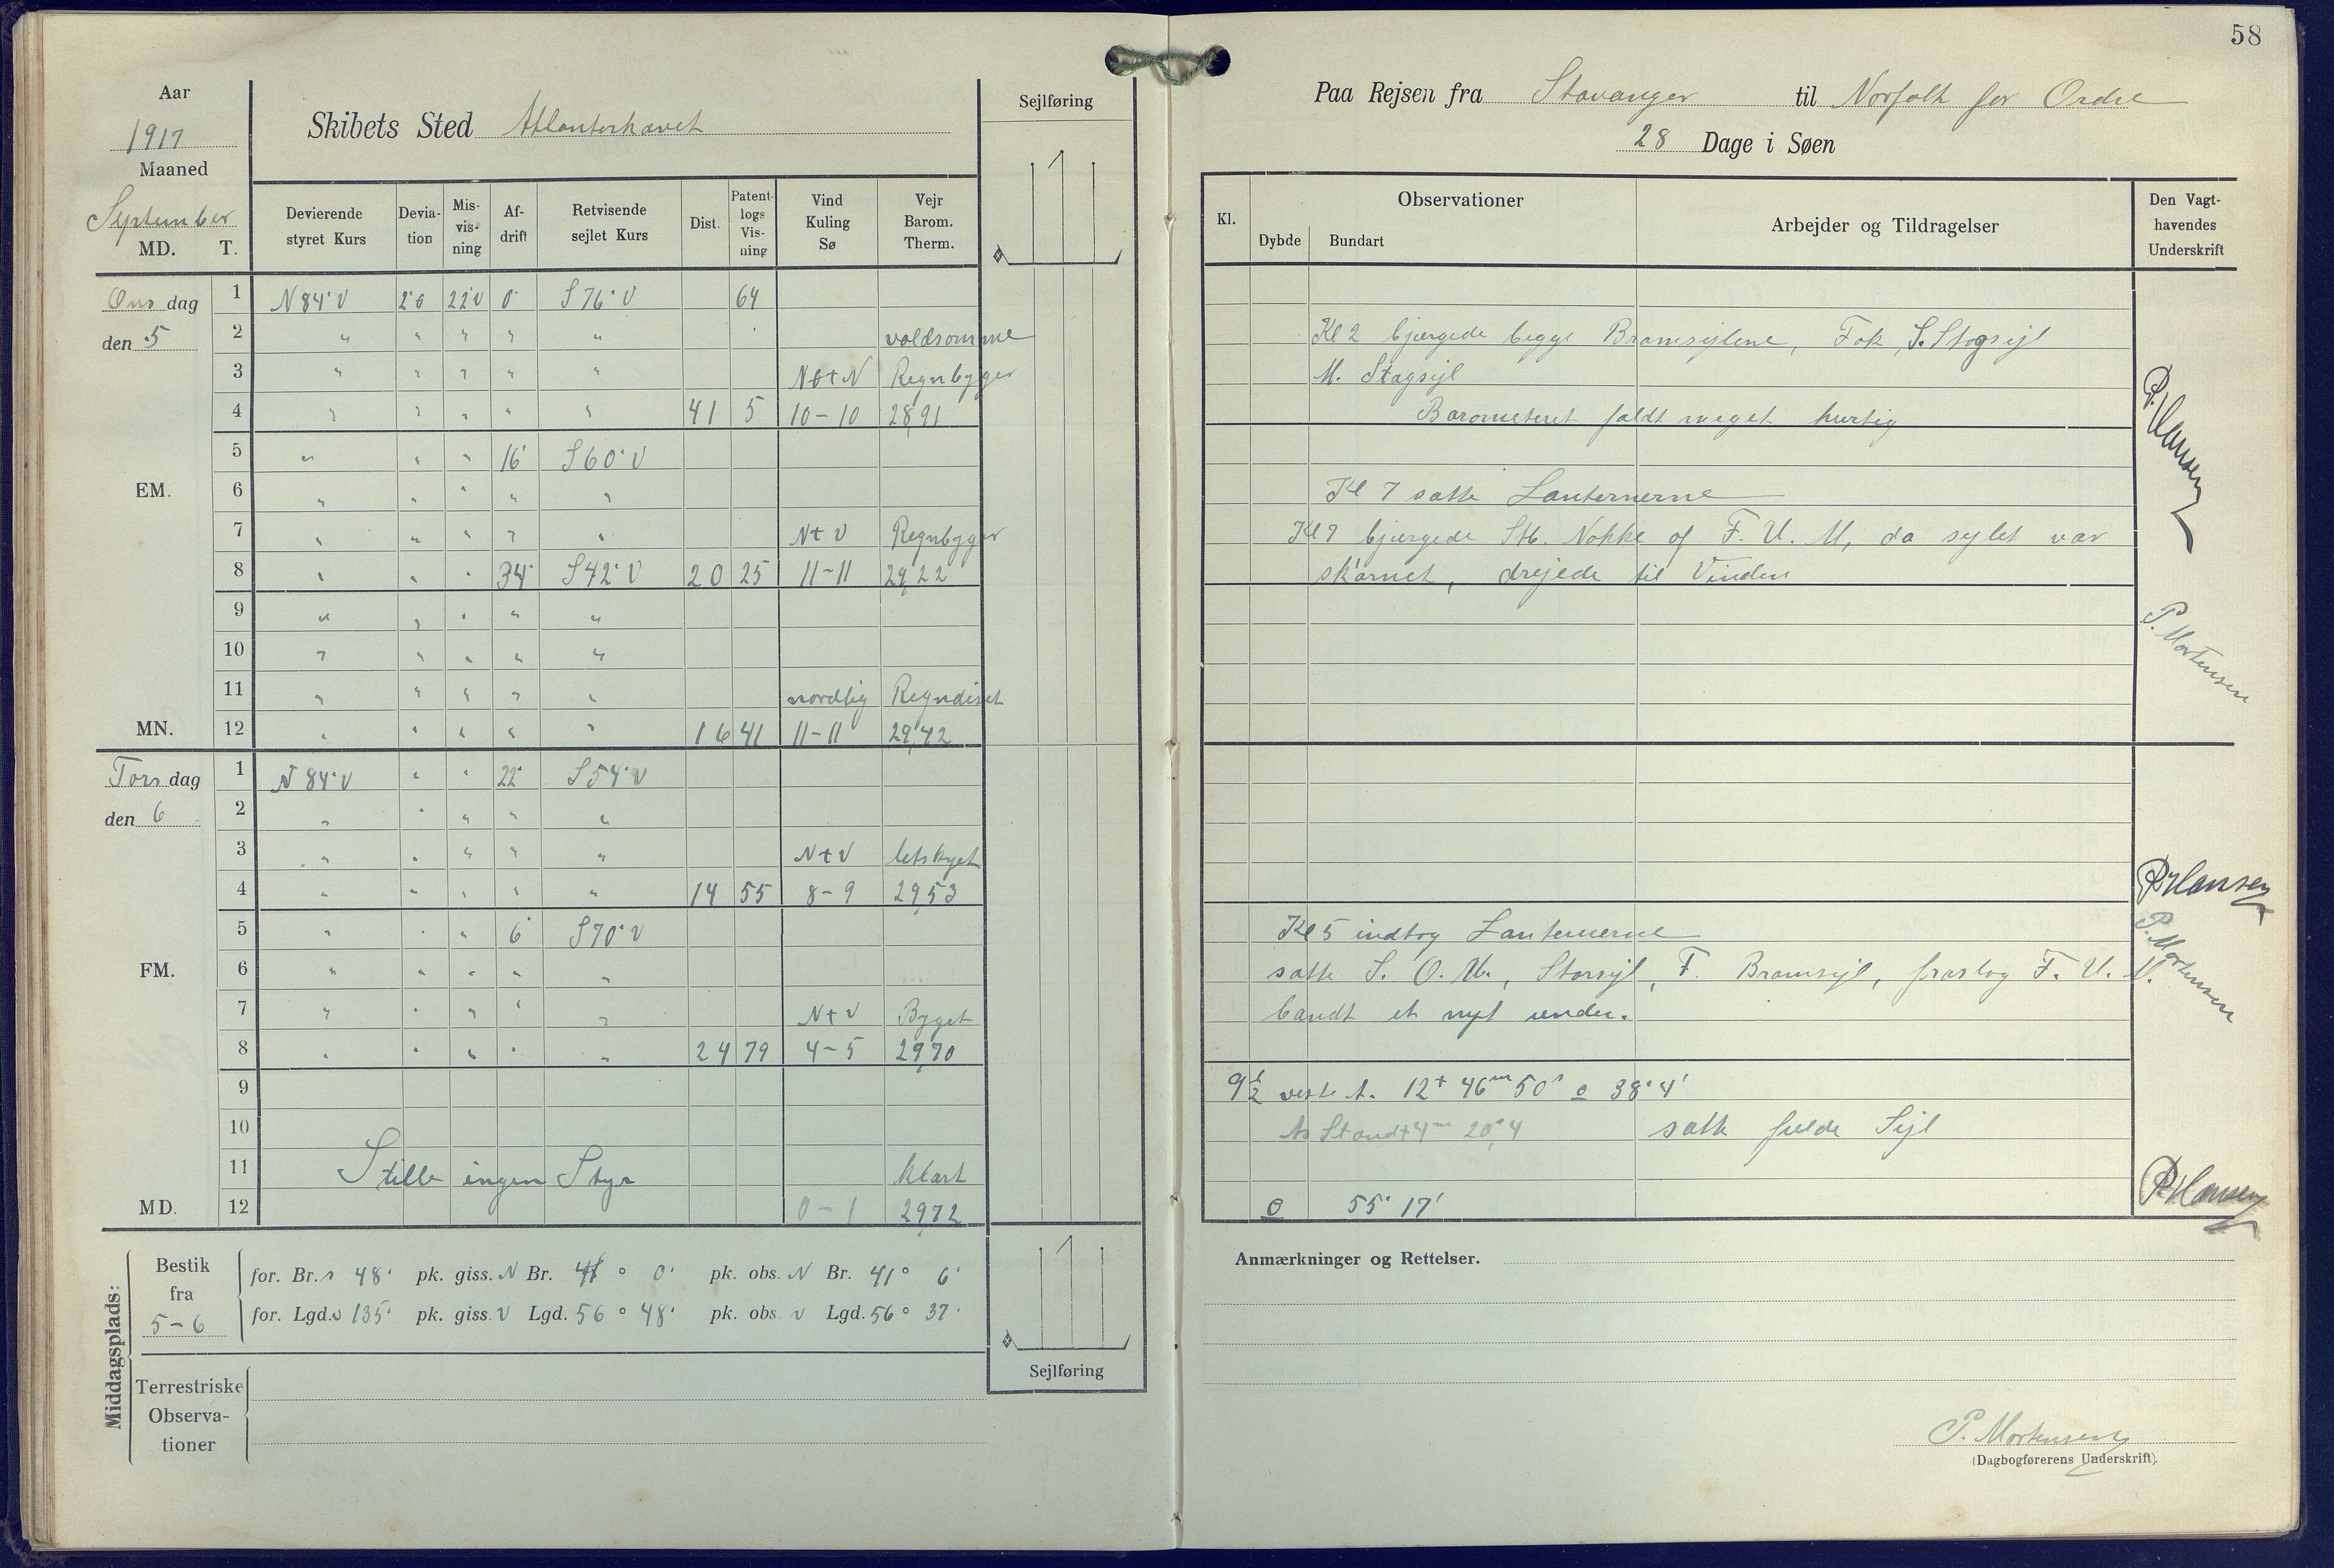 58
Aar
1917
Maaned
September
MD. T.
Skibets Sted Atlanterhavet
Sejlføring
Devierende styret Kurs | Devia-tion | Mis-vis-ning | Af-drift | Retvisende sejlet Kurs | Dist. | Patent-logs Vis-ning | Vind Kuling Sø | Vejr Barom. Therm.
Ons dag 1 N 84° V 2°Ø 22°V 0° S 76° V 64
den 5 2 " " " " " voldsomme
3 " " " " " N t N Regnbyger
4 " " " " " 41 5 10-10 28,91
5 " " " 16° S 60° V
EM. 6 " " " " "
7 " " " " " N t V Regnbyger
8 " " " 34° S 42° V 20 25 11-11 29,22
9 " " " " "
10 " " " " "
11 " " " " " nordlig Regndiset
MN. 12 " " " " " 16 41 11-11 29,42
Tors dag 1 N 84° V " " 22° S 54° V
den 6 2 " " " " "
3 " " " " " N t V letskyet
4 " " " " " 14 55 8-9 29,53
5 " " " 6° S 70° V
FM. 6 " " " " "
7 " " " " " N t V Byget
8 " " " " " 24 79 4-5 29,70
9
10
11 Stille ingen Styr klart
MD. 12 0-1 29,72
Middagsplads:
Bestik fra 5-6
for. Br. s 48' pk. giss. N Br. 41° 0' pk. obs. N Br. 41° 6'
for. Lgd. v 135' pk. giss. V Lgd. 56° 48' pk. obs. v Lgd. 56° 37'
Terrestriske
Observa-
tioner
Sejlføring
Paa Rejsen fra Stavanger til Norfolk for Ordre
28 Dage i Søen
Kl. | Observationer | Dybde | Bundart | Arbejder og Tildragelser | Den Vagt-havendes Underskrift
Kl 2 bjergede begge Bramsejlene, Fok, S. Stagsejl
M. Stagsejl
Barometeret faldt meget hurtig
P. Hansen
Kl 7 satte Lanternerne
Kl 7 bjergede Stb. Nokke af F. U. M, da sejlet var
skørnet, drejede til Vinden
P. Mortensen
P. Hansen
Kl 5 indtog Lanternerne
satte S. O. M., Storsejl, F. Bramsejl, fraslog F. U. M.
bandt et nyt under.
P. Mortensen
9½ veste A. 12t 46m 50s 38° 4'
As Stand + 4m 20s,4 satte fulde Sejl
55° 17'
P. Hansen
Anmærkninger og Rettelser.
P. Mortensen
(Dagbogførerens Underskrift).